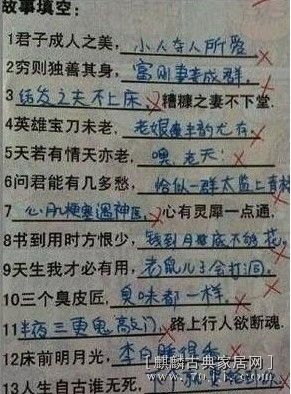 故事填空:
1君子成人之美,小人夺人所爱
2穷则独善其身,富则妻妾成群.
3结发之夫不上床,糟糠之妻不下堂.
4英雄宝刀未老,老娘风韵尤存
5天若有情天亦老,噢,老天!
6问君能有几多愁,恰似一群太监上青楼
7心肌梗塞遇神医,心有灵犀一点通,
8书到用时方恨少,钱到月底不够花.
9天生我才必有用,老鼠儿子会打洞.
10三个臭皮匠,臭味都一样.
11半夜三更鬼敲门,路上行人欲断魂.
12床前明月光,李白
13人生自古谁无死,
麒麟古典家居网